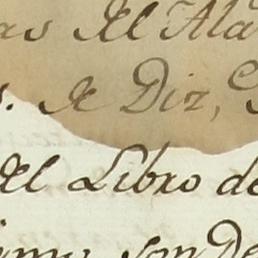 del Ala
de Diz,
del Libro de
son De